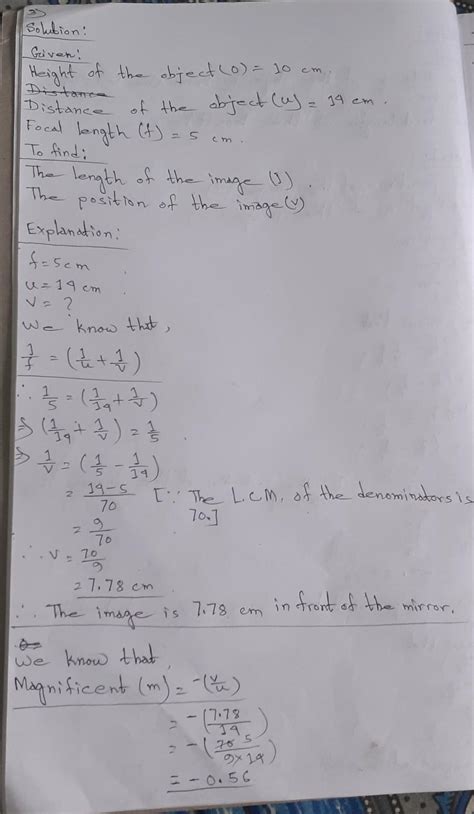 3)
Solution:
Given:
Height of the object (O) = 10 cm.
Distance
Distance of the object (u) = 14 cm.
Focal length (f) = 5 cm.
To find:
The length of the image (I).
The position of the image (v)
Explanation:
f = 5 cm
u = 14 cm
v = ?
We know that,
1/f = (1/u + 1/v)
∴ 1/5 = (1/14 + 1/v)
⇒ (1/14 + 1/v) = 1/5
⇒ 1/v = (1/5 - 1/14)
= 14-5/70 [∵ The L.C.M. of the denominators is 70.]
= 9/70
∴ v = 70/9
= 7.78 cm
∴ The image is 7.78 cm in front of the mirror.
We know that,
Magnificent (m) = -(v/u)
= -(7.78/14)
= -(70 5/9×14)
= -0.56